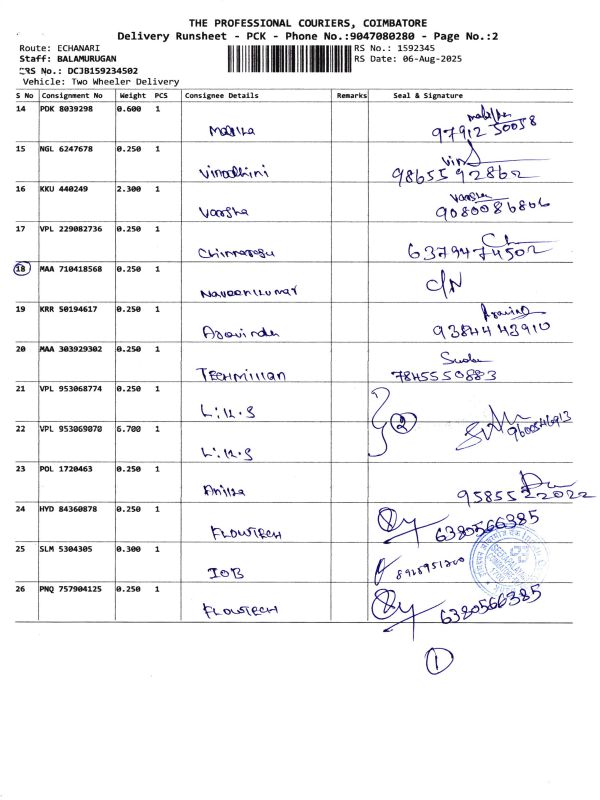 THE PROFESSIONAL COURIERS, COIMBATORE
Delivery Runsheet - PCK - Phone No.:9047080280 - Page No.:2
Route: ECHANARI RS No.: 1592345
Staff: BALAMURUGAN RS Date: 06-Aug-2025
CRS No.: DCJB159234502
Vehicle: Two Wheeler Delivery
S No Consignment No Weight PCS Consignee Details Remarks Seal & Signature
14 PDK 8039298 0.600 1
97912 50058
15 NGL 6247678 0.250 1
Vinodhini 9865592862
16 KKU 440249 2.300 1 Varsha
Varsha 9080086806
17 VPL 229082736 0.250 1
Chinnaraju 6379474502
18 MAA 710418568 0.250 1 C/N
Naveenkumar
19 KRR 50194617 0.250 1 Aravind
Aravindh 9384443910
20 MAA 303929302 0.250 1
TECHMILLAN 7845550883
21 VPL 953068774 0.250 1
L.i.K.S 2
22 VPL 953069070 6.700 1 9600546913
L.i.K.S
23 POL 1720463 0.250 1
9585522022
24 HYD 84360878 0.250 1
FLOWTECH 6380566385
25 SLM 5304305 0.300 1
IOB 8928951200
26 PNQ 757904125 0.250 1
FLOWTECH 6380566385
1